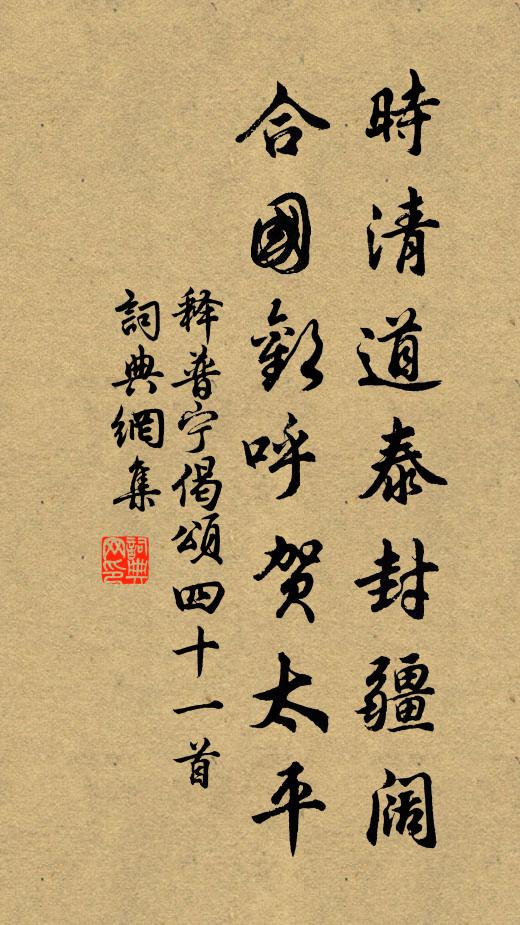 時清道泰封疆闊
合國歡呼賀太平
释普宁偈頌四十一首
詞典網集
詞典网印